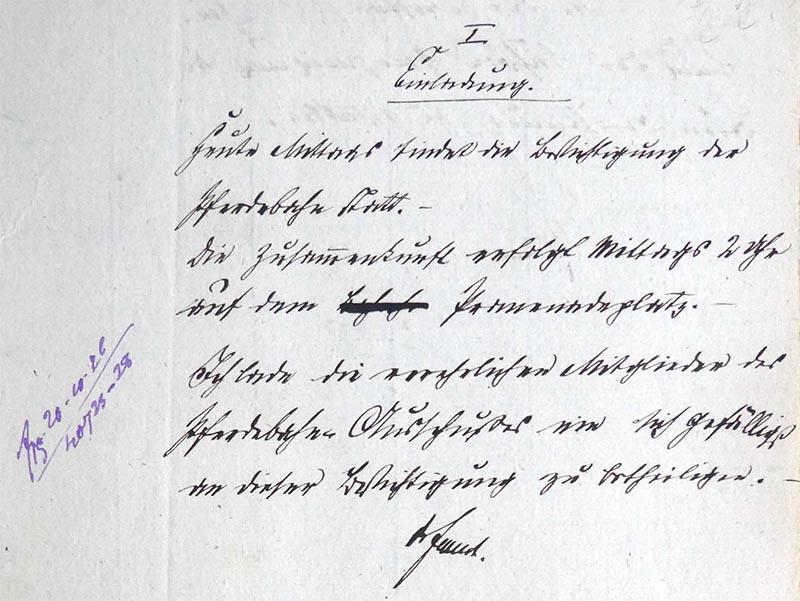 I
Einladung.
Heute Mittags findet die Besichtigung der
Pferdebahn statt. –
Die Zusammenkunft erfolgt Mittags 2 Uhr
auf dem Promenadeplatz. –
Ich lade die verehrlichen Mitglieder des
Pferdebahn-Ausschußes ein sich gefälligst
an dieser Besichtigung zu betheiligen. –